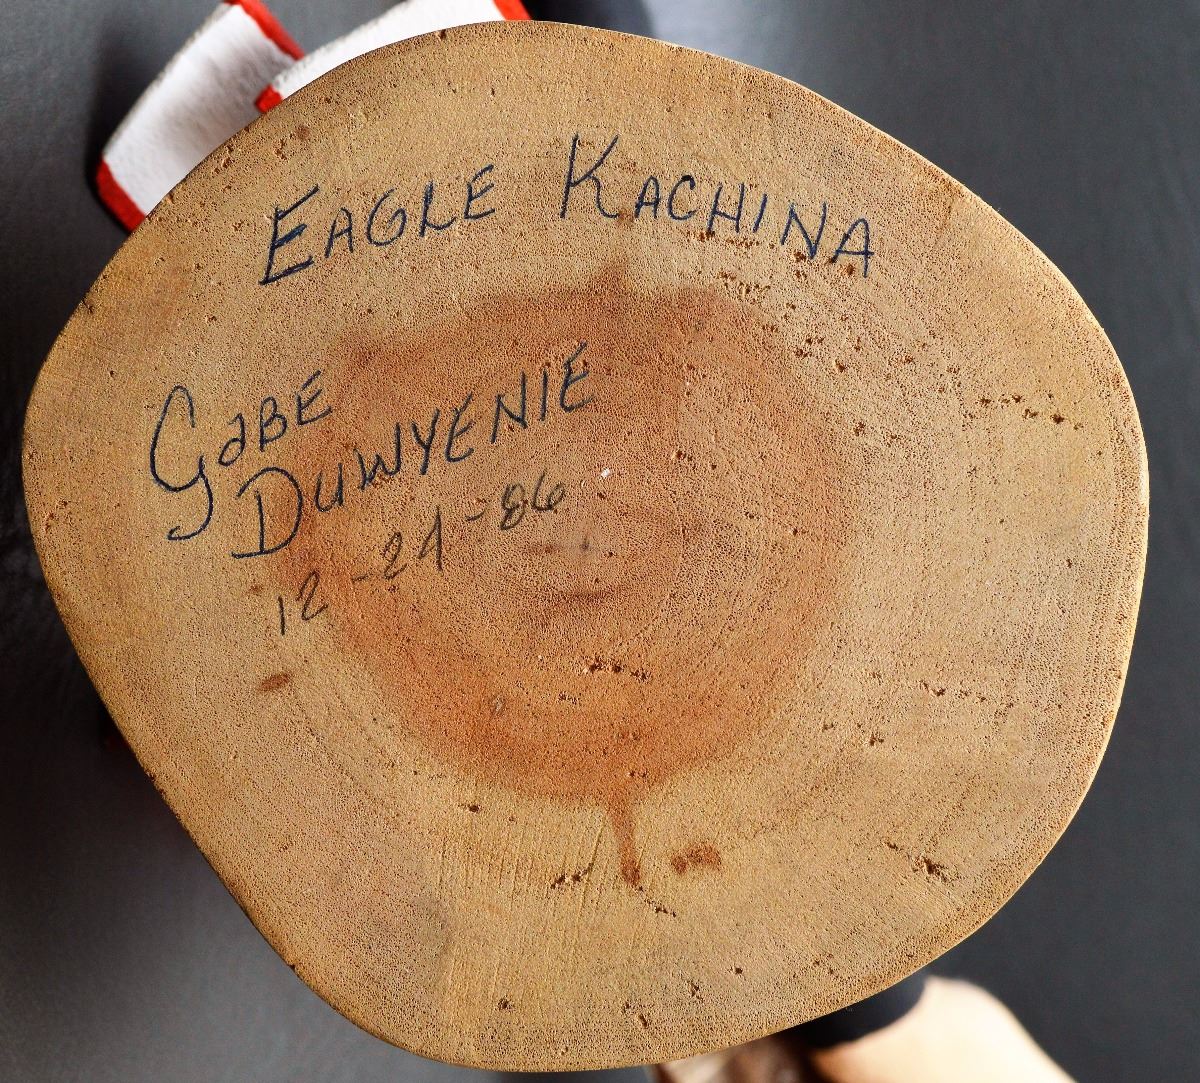 EAGLE KACHINA
GABE
DUWYENIE
12-24-86